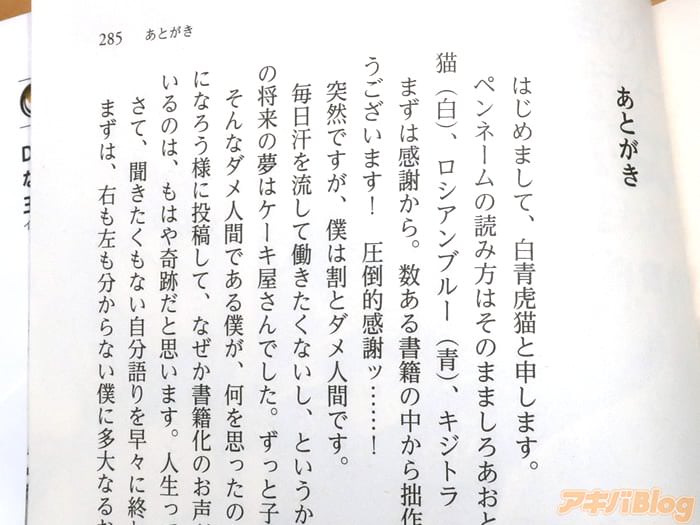 285 あとがき
あとがき
はじめまして、白青虎猫と申します。
ペンネームの読み方はそのまましろあおと
猫（白）、ロシアンブルー（青）、キジトラ
まずは感謝から。数ある書籍の中から拙作
うございます！　圧倒的感謝ッ……！
突然ですが、僕は割とダメ人間です。
毎日汗を流して働きたくないし、というか
の将来の夢はケーキ屋さんでした。ずっと子
そんなダメ人間である僕が、何を思ったの
になろう様に投稿して、なぜか書籍化のお声が
いるのは、もはや奇跡だと思います。人生って
さて、聞きたくもない自分語りを早々に終わ
まずは、右も左も分からない僕に多大なるお
アキバBlog